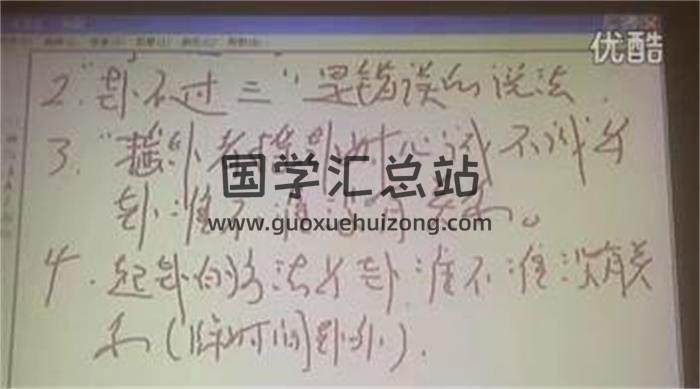 优酷
2."卦不过三"是错误的说法.
3."摇卦者摇卦时心诚不诚与
卦准不准没有关系。
国学汇总站
www.guoxuehuizong.com
4.起卦的方法与卦准不准没有关
系(除时间卦外).